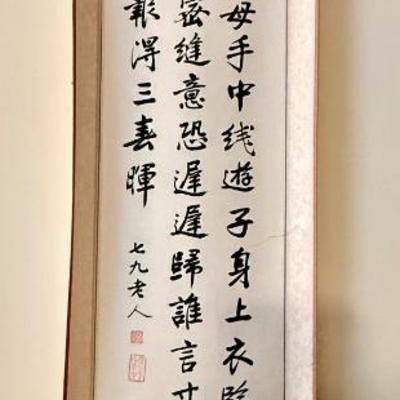 母手中线遊子身上衣臨
密縫意恐遲遲歸誰言寸
報得三春暉
七九老人